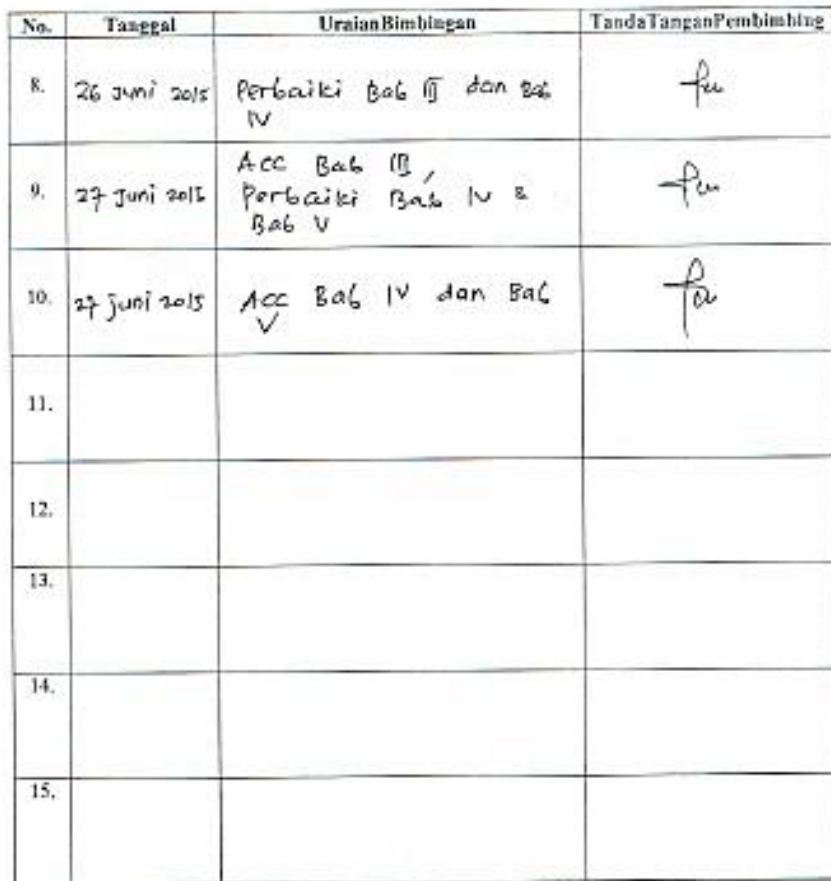 No. Tanggal UraianBimbingan TandaTanganPembimbing
8. 26 Juni 2015 Perbaiki Bab III dan Bab
IV
Acc Bab III,
9. 27 Juni 2015 Perbaiki Bab IV &
Bab V
10. 27 juni 2015 Acc Bab IV dan Bab
V
11.
12.
13.
14.
15.